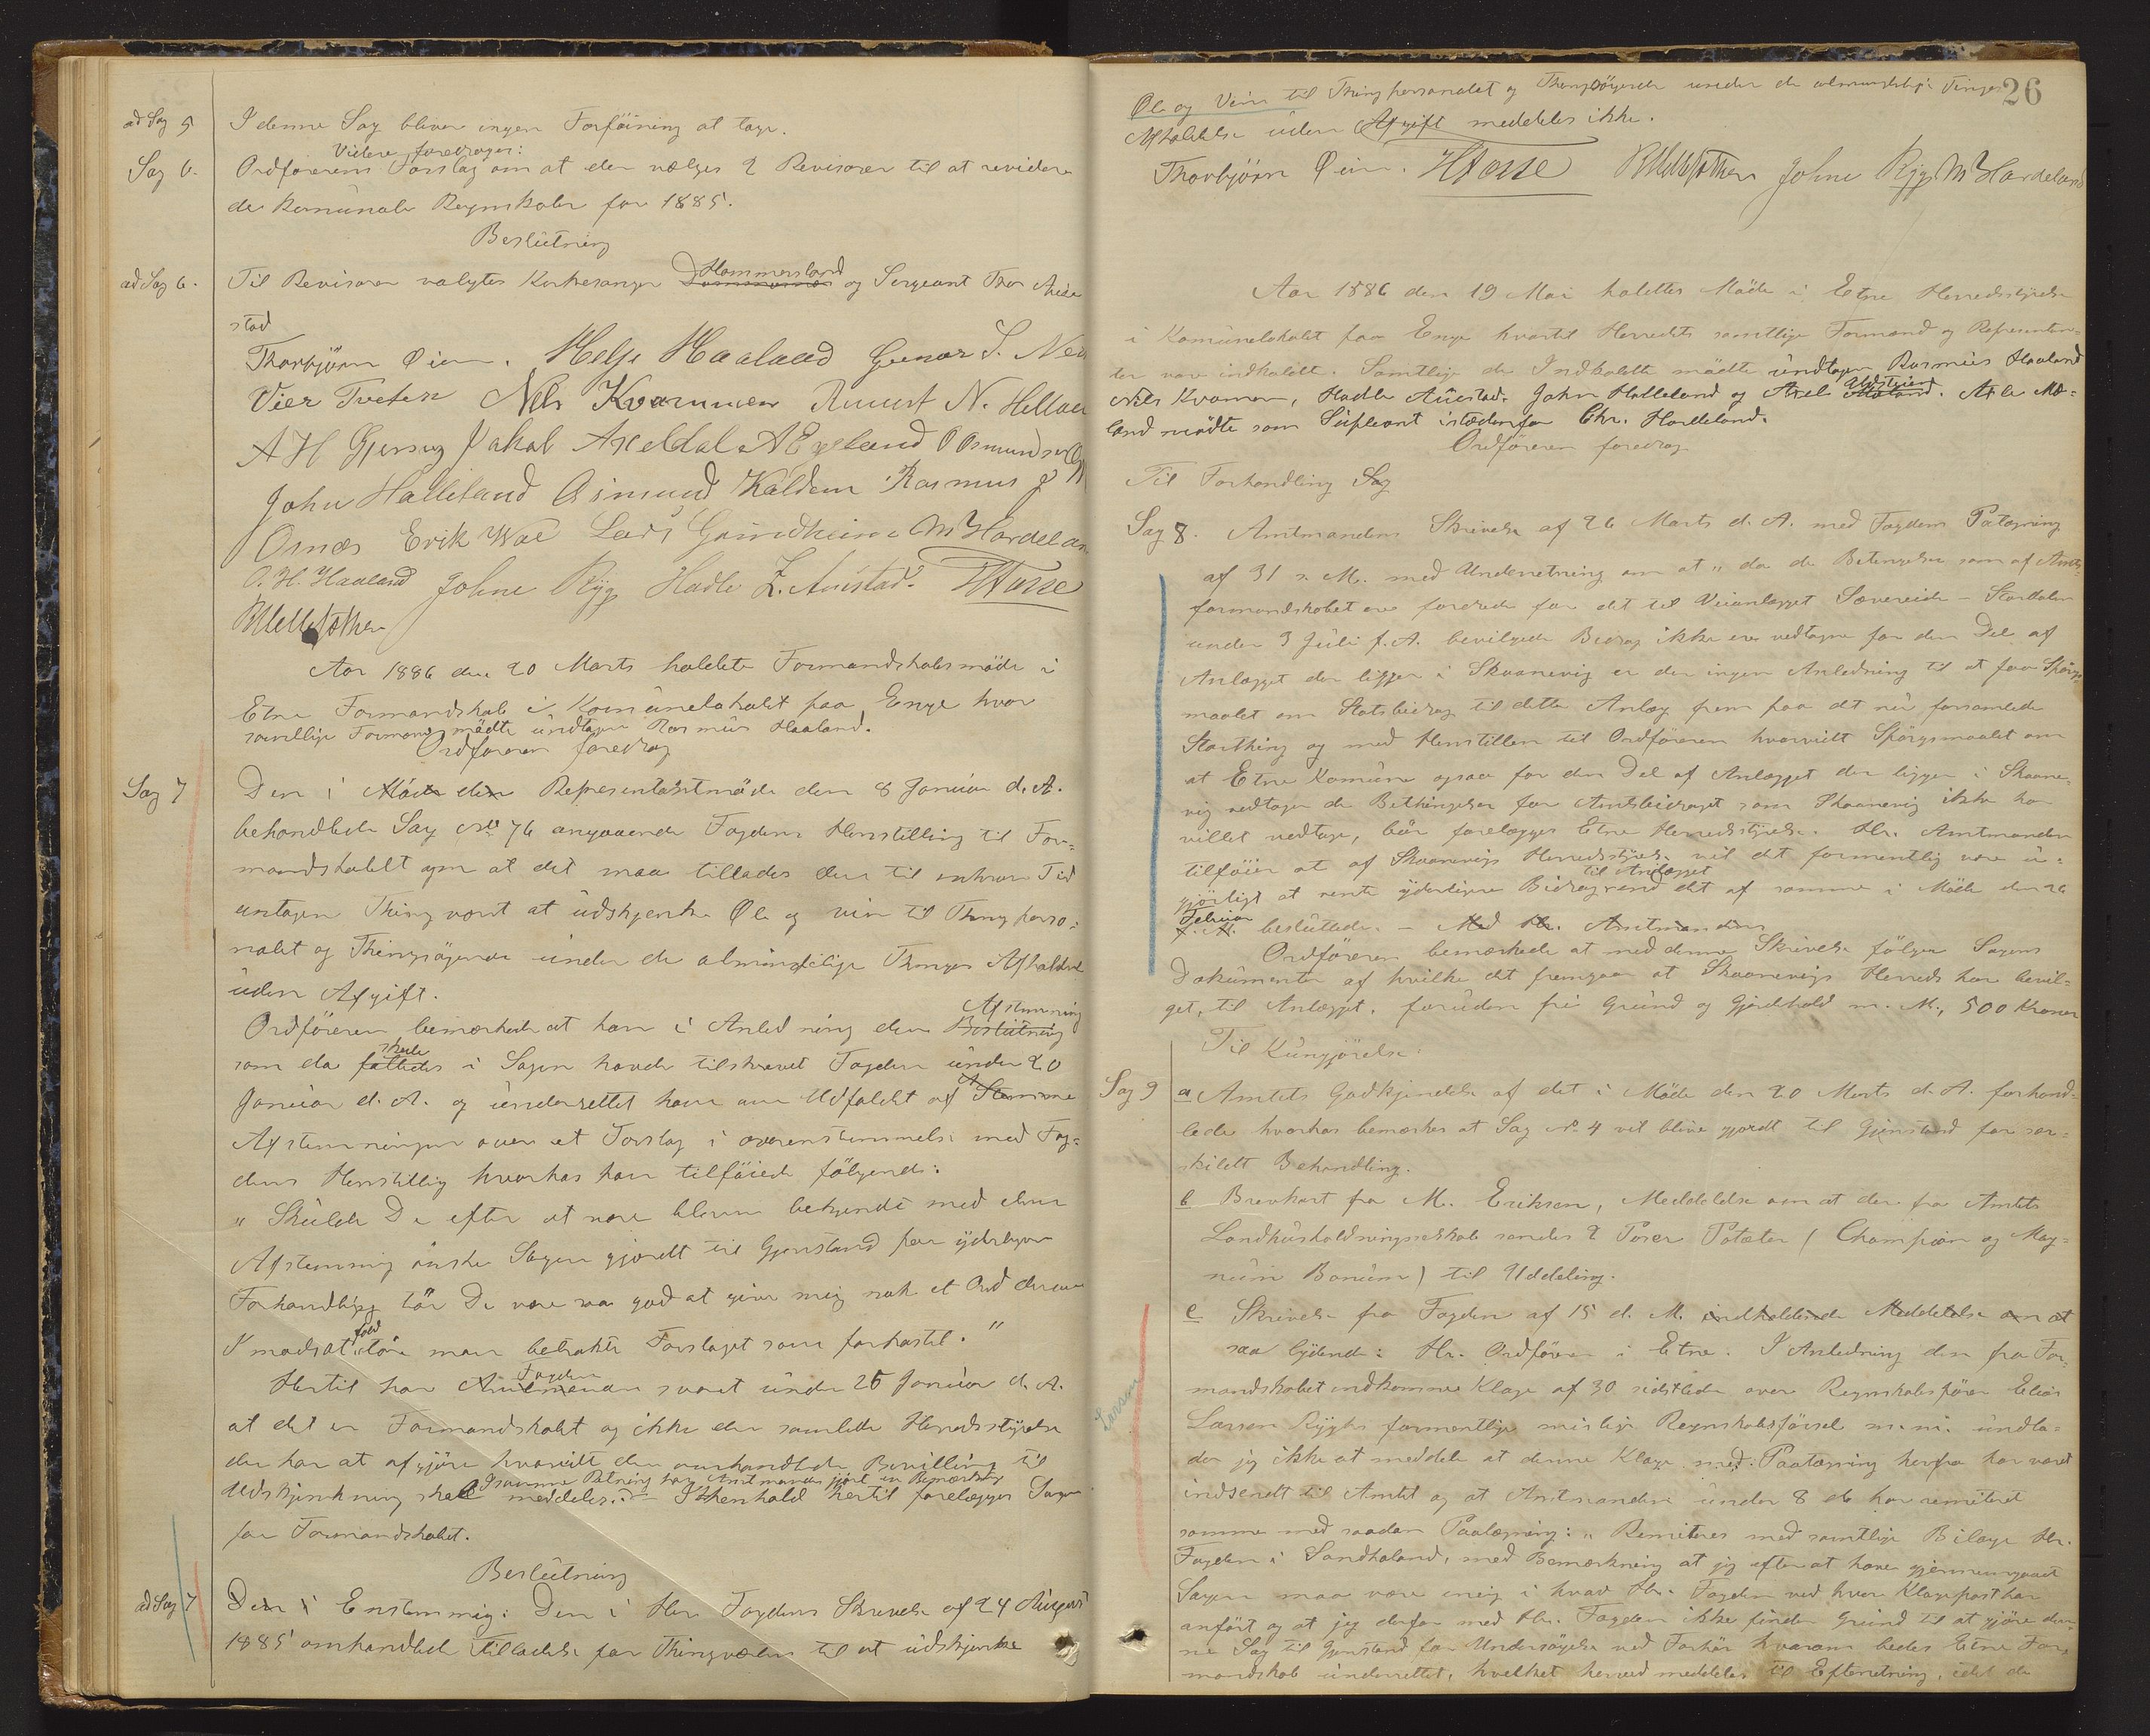 ad Sag 5 I denne Sag bliver ingen Forföining at tage.
Videre foredroges:
Sag 6. Ordförerens Forslag om at der vælges 2 Revisorer til at revidere
de komunale Regnskaber for 1885.
Beslutning
ad Sag 6. Til Revisorer valgtes Kirkesanger Hammersland og Sergeant Thor Aue
stad
Thorbjörn Øien. Helje Haaland Gunar S. Nes
Vier Tveten Nils Kvammen August N. Hellae
A H Gjersvig Jakob Axeldal A Egeland O Osmundsen
John Halleland Asmund Kaldem Rasmus J
Osnæs Erik Wae Lars Grindheim M Hardeland
O. H. Haaland Johne Rygg Hadle Z. Austad. HTosse
Aar 1886 den 20 Marts holdtes Formandskabsmöde i
Etne Formandskab i Komunelokalet paa Enge hvor
samtlige Formænd mödte undtagen Rasmus Haaland.
Ordföreren foredrog
Sag 7 Den i Möde den Representantmöde den 8 Januar d. A.
behandlede Sag No 76 angaaende Fogdens Henstilling til For-
mandskabet om at det maa tillades den til enhver Tid
antagen Thingvært at udskjenke Øl og vin til Thingperso-
nalet og Thingsögende under de almindelige Thinges Afholdel
uden Afgift.
Afstemning
Ordföreren bemærkede at han i Anledning den Beslutning
skede
som da fattedes i Sagen havde tilskrevet Fogden under 20
Januar d. A. og underrettet ham om Udfaldet af Stemme
Afstemningen over et Forslag i overenstemmelse med Fog-
dens Henstilling hvorhos han tilföiede fölgende:
"Skulde De efter at være bleven bekjendt med denne
Afstemning önske Sagen gjordt til Gjenstand for yderligere
Forhandling bör De være saa god at give mig nok et Ord derom
I modsat fald tör man betrakte Forslaget som forkastet."
Fogden
Hertil har Amtmanden svaret under 25 Januar d. A.
at det er Formandskabet og ikke den samlede Herredsstyrelse
der har at afgjöre hvorvidt den omhandlede Bevilling til
I samme Retning har Amtmanden gjort en Bemærkning
Udskjenkning skal meddeles. I Henhold hertil forelægges Sagen
for Formandskabet.
Beslutning
ad Sag 7 Den i Enstemmig: Den i Her Fogdens Skrivelse af 24 August
1885 omhandlede Tilladelse for Thingværten til at udskjenke
26
Øl og Vin til Thingpersonalet og Thingsögende under de almindelige Tinges
Afholdelse uden Afgift meddeles ikke.
Thorbjörn Øien. HTosse Johne Rygg M Hardeland
Aar 1886 den 19 Mai holdtes Möde i Etne Herredsstyrelse
i Komunelokalet paa Enge hvortil Herredets samtlige Formænd og Representan-
ter var indkaldt. Samtlige de Indkaldte mödte undtagen Rasmus Haaland
Nils Kvamen, Hadle Austad. John Halleland og Axel Møland. Atle Mø-
land mödte som Supleant istedenfor Chr. Hardeland.
Ordföreren foredrog
Til Forhandling Sag
Sag 8. Amtmandens Skrivelse af 26 Marts d. A. med Fogdens Paategning
af 31 s. M. med Underretning om at "da de Betingelser som af Amts-
formandskabet ere fordrede for det til Veianlægget Sævereide - Stordalen
under 3 Juli f. A. bevilgede Bidrag ikke ere vedtagne for den Del af
Anlægget der ligger i Skaanevig er der ingen Anledning til at faa Spörgs-
maalet om Statsbidrag til dette Anlæg frem paa det nu forsamlede
Storthing og med Henstillen til Ordföreren hvorvidt Spörgsmaalet om
at Etne Komune ogsaa for den Del af Anlægget der ligger i Skaane-
vig vedtager de Bethingelser for Amtsbidraget som Skaanevig ikke har
villet vedtage, bör forelægges Etne Herredsstyrelse. Hr. Amtmanden
tilföier at af Skaanevigs Herredsstyrelse vil det formentlig være u-
til Anlægget
gjörligt at vente yderligere Bidrag end det af samme i Möde den 26
Februar
f. A. besluttede. - Med Hr. Amtmandens
Ordföreren bemærkede at med denne Skrivelse fölger Sagens
Dokumenter af hvilke det fremgaar at Skaanevigs Herreds har bevil-
get, til Anlægget, foruden fri Grund og Gjerdehold m. M., 500 Kroner
Til Kungjörelse:
Sag 9 a Amtets Godkjendelse af det i Möde den 20 Marts d. A. forhand-
lede hvorhos bemærkes at Sag No 4 vil blive gjordt til Gjenstand for sær-
skildt Behandling.
b Brevkort fra M. Eriksen, Meddelelse om at der fra Amtets
Landhusholdningsselskab sendes 2 Poser Potæter (Champion og Mag-
num Bonum) til Uddeling.
c Skrivelse fra Fogden af 15 d. M. indholdende Meddelelse om at
saa lydende: Hr. Ordförer i Etne. I Anledning den fra For-
mandskabet indkomne Klage af 30 sidstlede over Regnskabsförer Elias
Larson
Larsen Rygghs formentlige mislige Regnskabsförsel m. m. undla-
der jeg ikke at meddele at denne Klage med Paategning herfra har været
indsendt til Amtet og at Amtmanden under 8 ds har remiteret
samme med saadan Paategning: "Remiteres med samtlige Bilage Hr.
Fogden i Söndhorland, med Bemærkning at jeg efter at have gjennemgaaet
Sagen maa være enig i hvad Hr. Fogden ved hver Klagepost har
anfört og at jeg derfor med Hr. Fogden ikke finder Grund til at gjöre den-
ne Sag til Gjenstand for Undersögelse ved Forhör hvorom bedes Etne For-
mandskab underrettet, hvilket herved meddeles til Efterretning, idet de